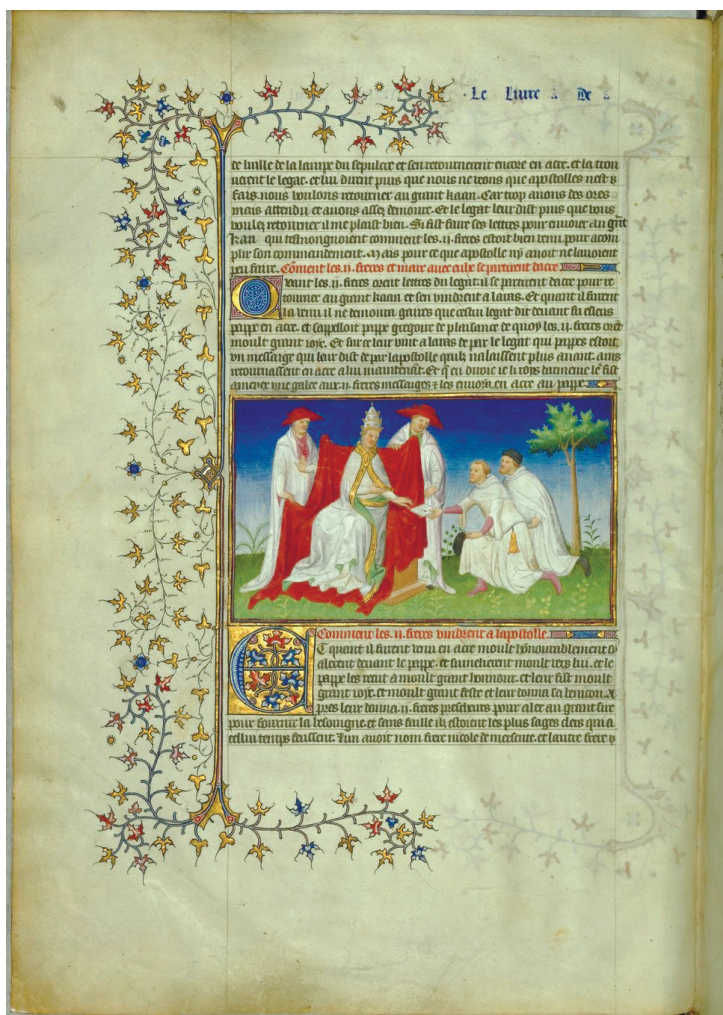 Le liure De
de luille de la lampe du sepulcre et sen retournerent encore en acre. et la trou
uerent le legat. et lui dirent puis que nous ne veons que apostolles nest
fais. nous voulons retourner au grant kaan. Car trop auons des ores
mais attendu et auons assez demoure. Et le legat leur dist puis que vous
voulez retourner il me plaist bien. Si fist faire ses lettres pour enuoier au grāt
kaan qui tesmongnoient comment les .ii. freres estoit bien venu pour acom
plir son commandement. Mais pour ce que apostolle ny auoit ne lauoient
peu faire. Cōment les .ii. freres et marc auec eulx se partirent dacre
Quant les .ii. freres orent lettres du legat il se partirent dacre pour re
tourner au grant kaan et sen vindrent a laias. Et quant il furent
la venu il ne demoura gaires que cestui legat dit deuant fu esleus
pappe en acre. et sappelloit pappe gregoire de plaisance de quoy les .ii. freres orēt
moult grant ioye. Et sur ce leur vint a laias de par le legat qui pappes estoit.
vn message qui leur dist de par lapostolle quilz nalaissent plus auant. ains
retournaissent en acre a lui maintenāt. Et en
vne galee aux .ii. freres messages et les enuoya en acre au pappe.
Comment les .ii. freres vindrent a lapostolle.
Et quant il furent venu en acre moult hōnourablement sē
alerent deuant le pappe. et sumelierent moult vers lui. et le
pappe les recut a moult grant honnour. et leur fist moult
grant ioye. et moult grant feste et leur donna sa beneicon. A
pres leur donna .ii. freres prescheurs pour aler au grant sire
pour fournir la besoingne et sans faille ilz estoient les plus sages clers qui a
cellui temps feussent. lun auoit nom frere nicole de et lautre frere